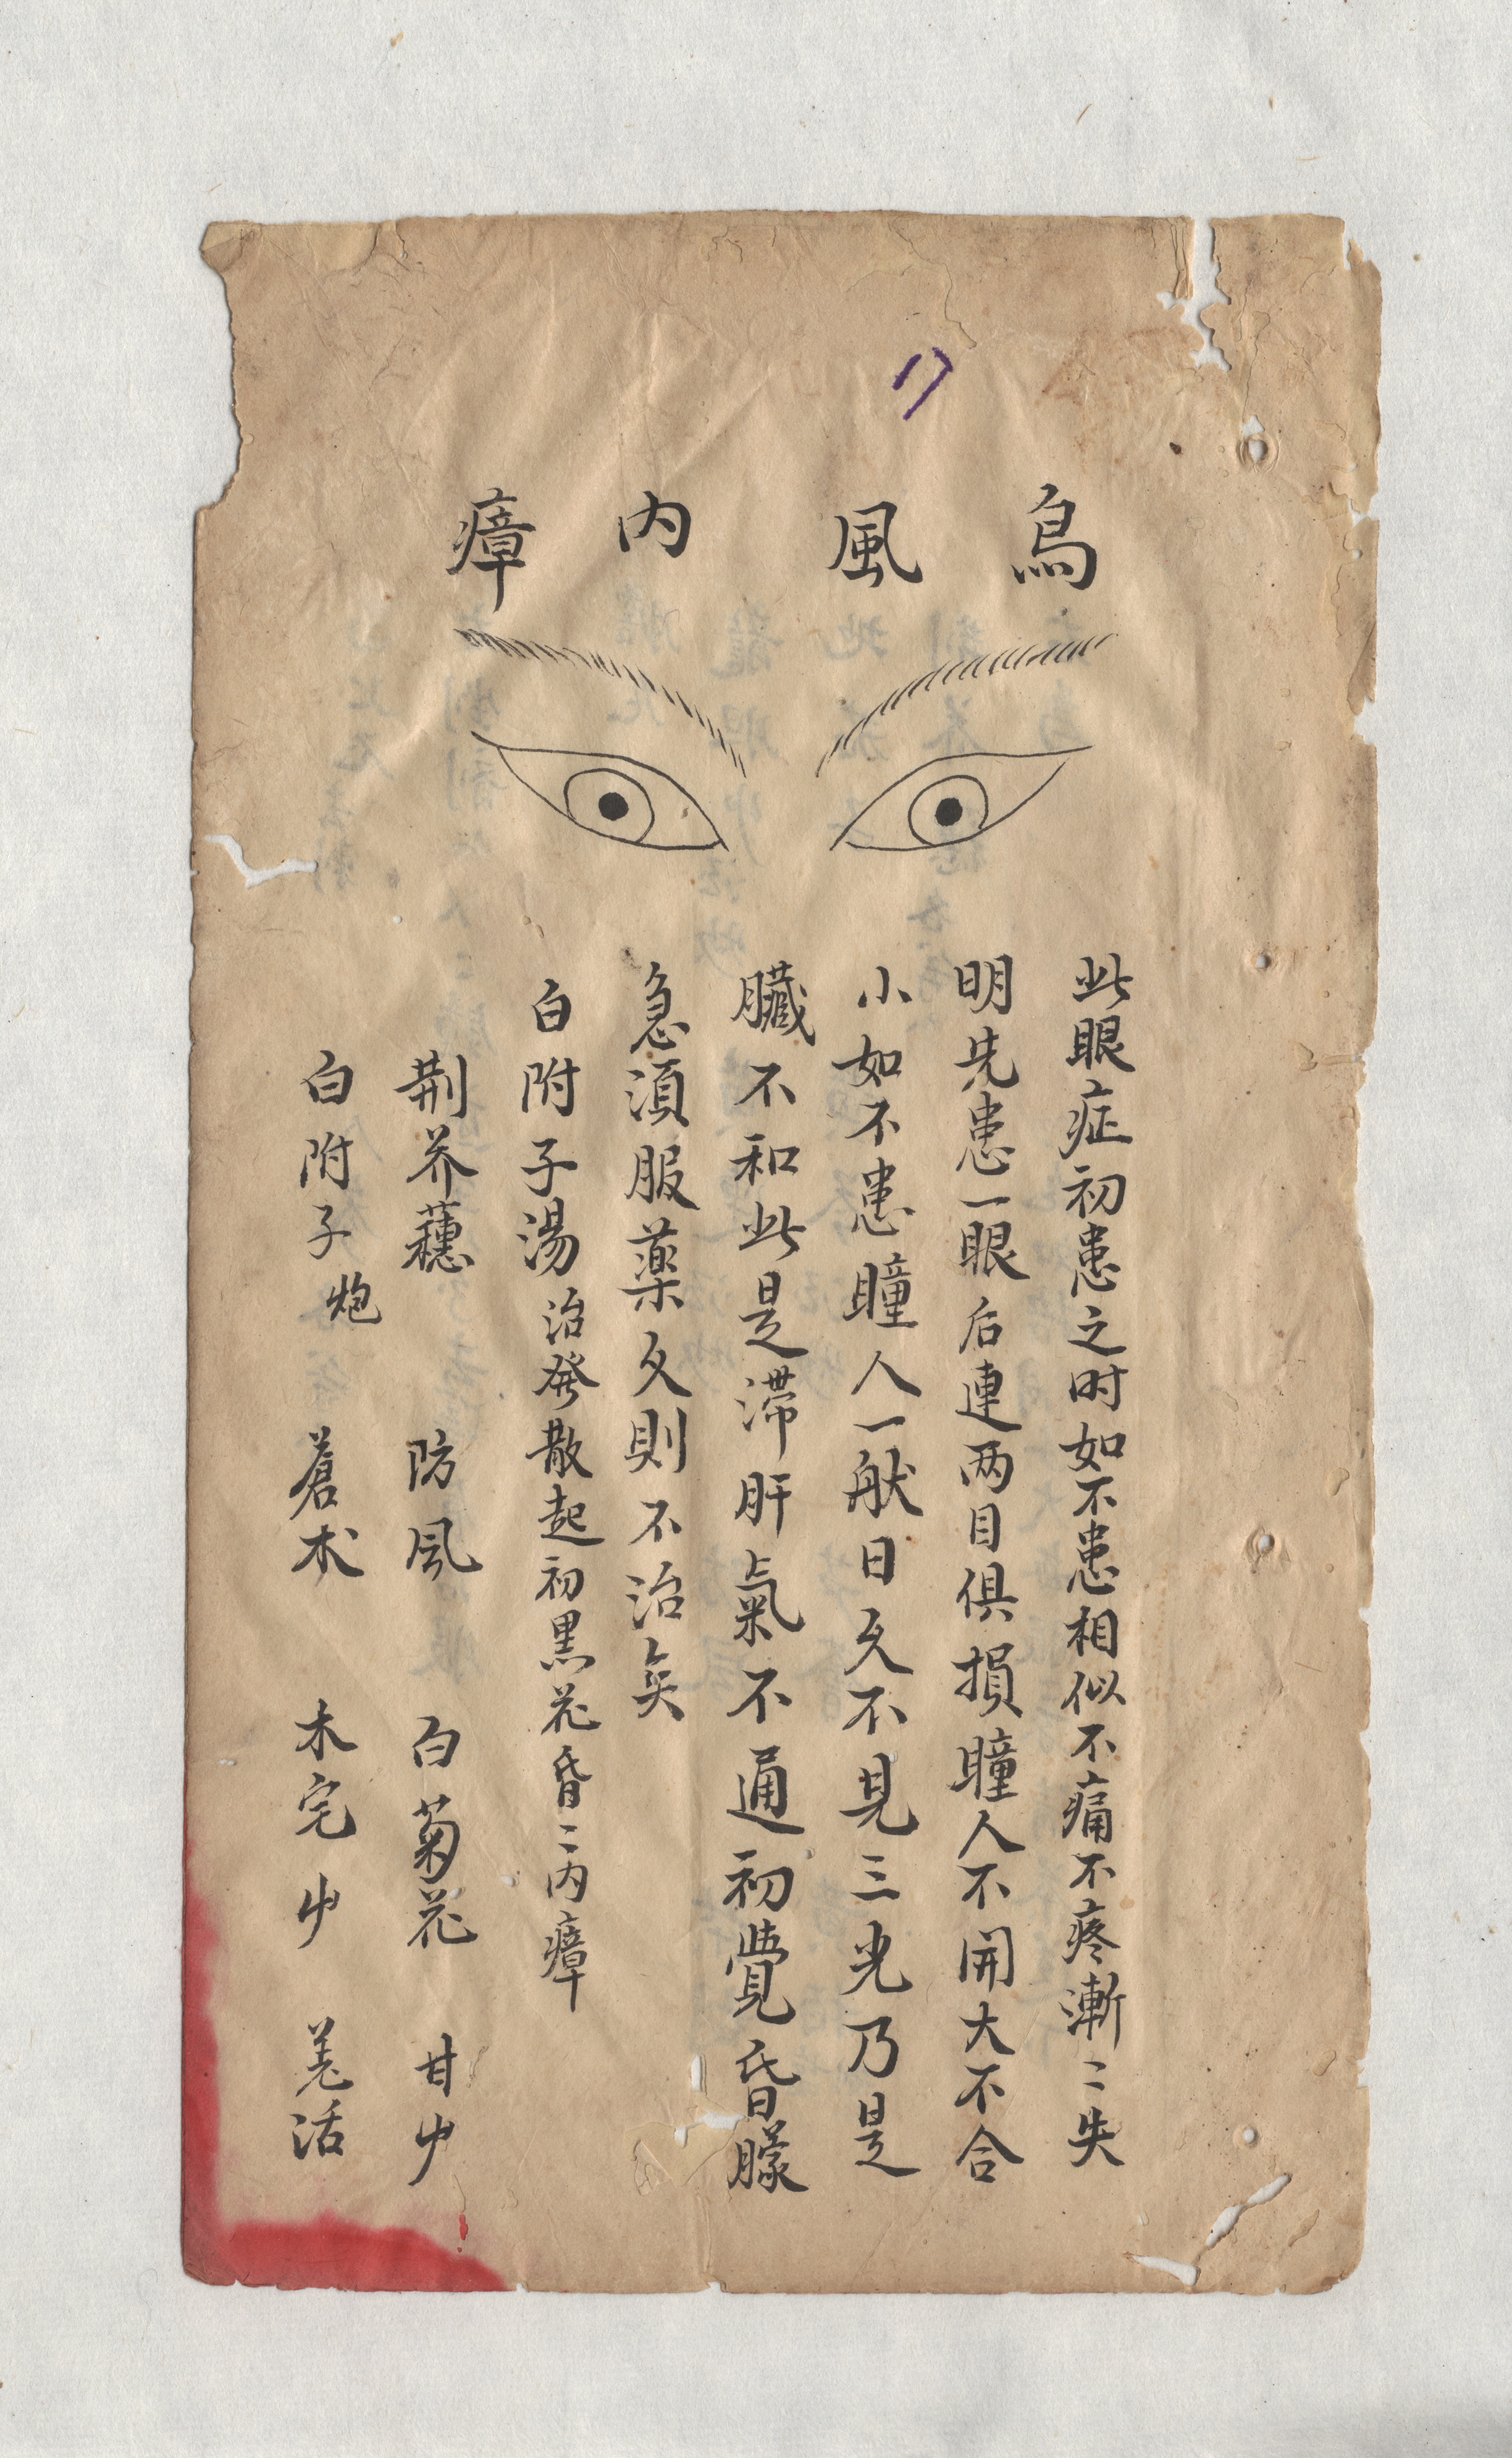 17
烏風內瘴
此眼症初患之时如不患相似不痛不疼漸〻失
明先患一眼后連两目俱損瞳人不開大不合
小如不患瞳人一般日久不見三光乃是
臟不和此是滞肝氣不通初覺昏矇
急湏服藥久則不治矣
白附子湯治發散起初黒花昏〻内瘴
荆芥蘓 防風 白菊花 甘屮
白附子炮 蒼术 木宅屮 羌活